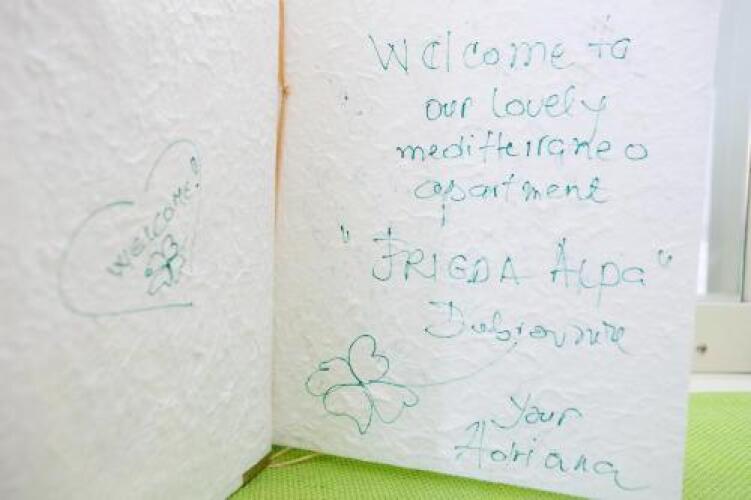 WELCOME!
Welcome to
our lovely
mediterraneo
apartment
"FRIGDA Alpa"
Dubrovnik
Your
Adriana